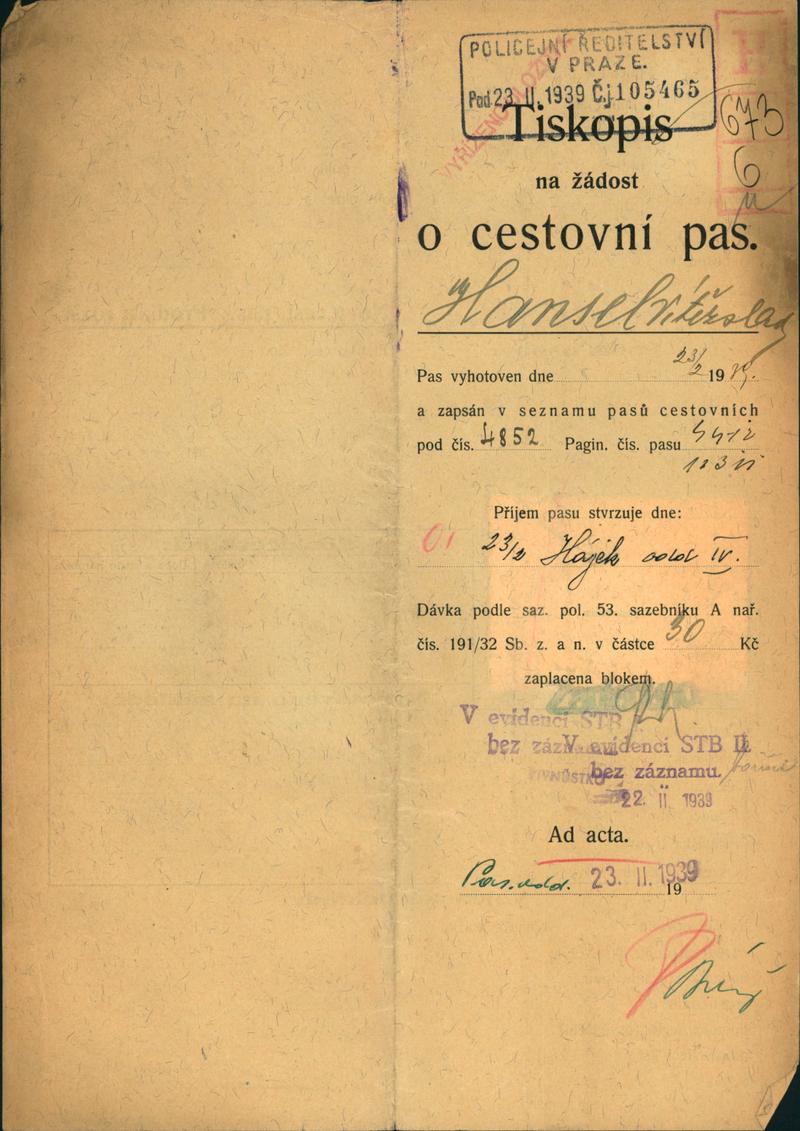 POLICEJNÍ ŘEDITELSTVÍ
V PRAZE.
Pod. 23. II. 1939 Č.j. 105465
Tiskopis
673
6
na žádost
o cestovní pas.
Hansel Vítězslav
Pas vyhotoven dne 23/2 1939.
a zapsán v seznamu pasů cestovních
pod čís. 4852 Pagin. čís. pasu
Příjem pasu stvrzuje dne:
23/2 Hájek odd IV.
Dávka podle saz. pol. 53. sazebníku A nař.
čís. 191/32 Sb. z. a n. v částce 30 Kč
zaplacena blokem.
V evidenci STB
bez záz V evidenci STB II
bez záznamu.
22. II 1939
Ad acta.
Pas. odd. 23. II. 1939
19